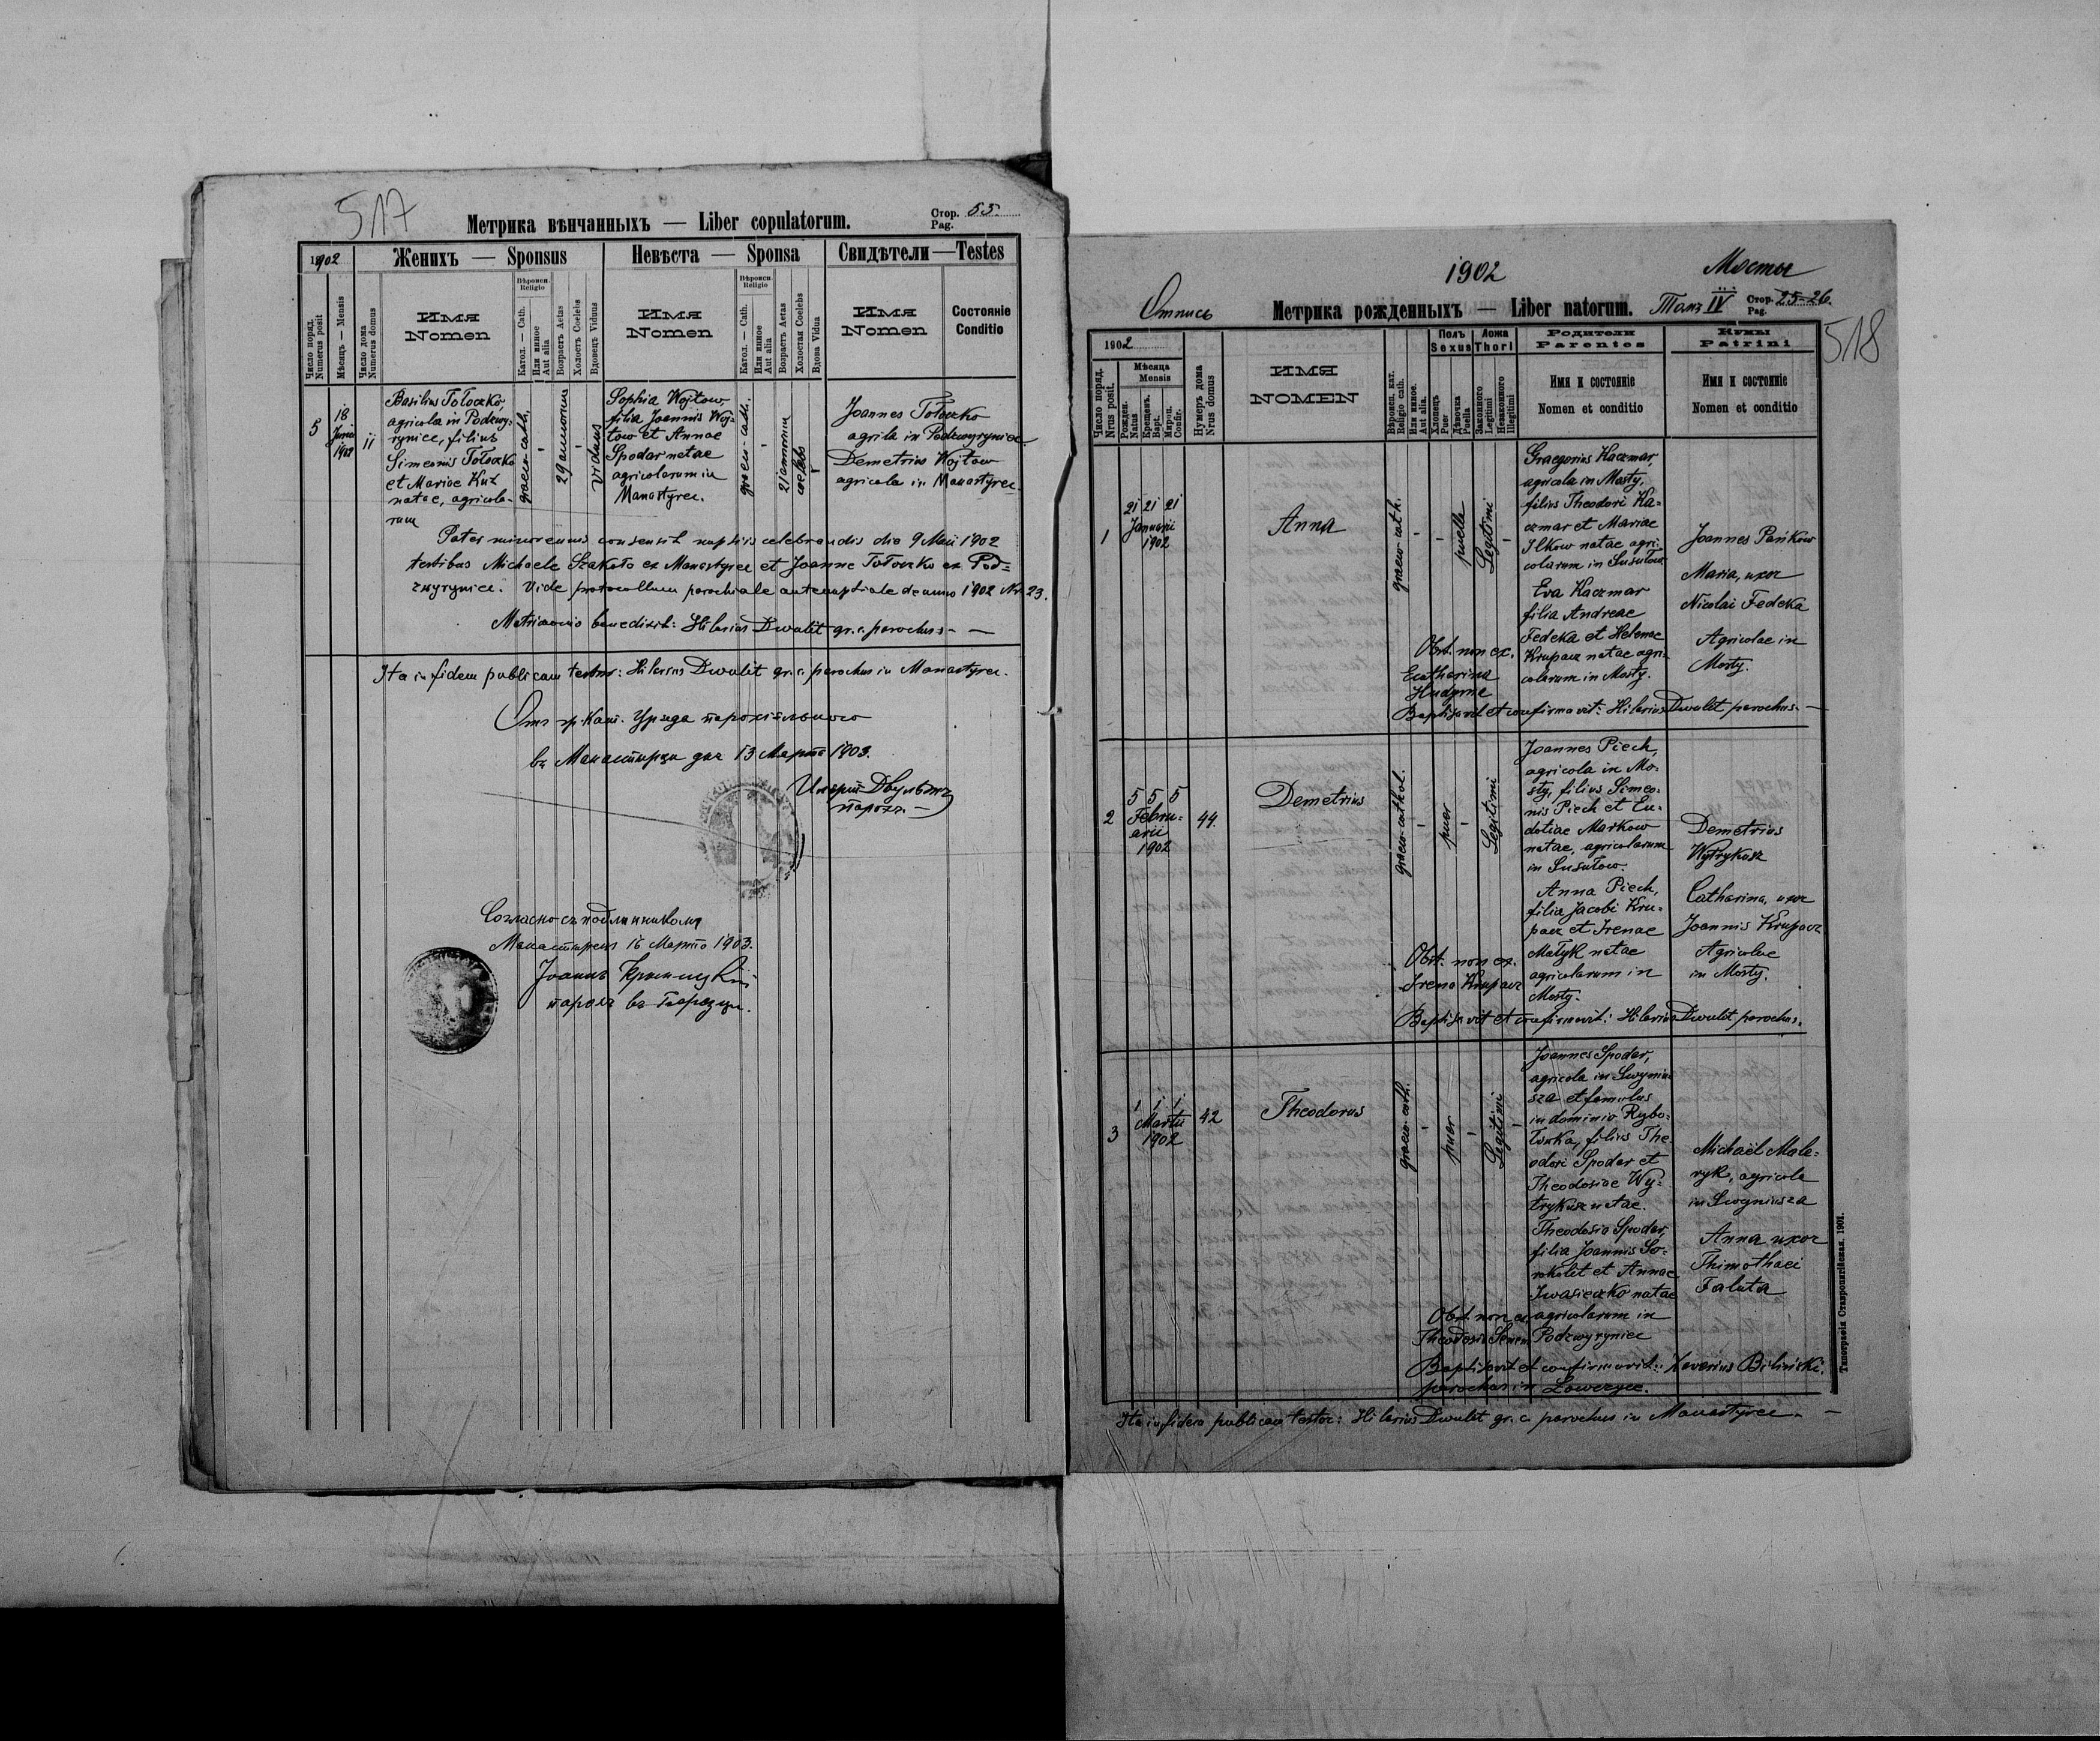 517
Метрика вѣнчанныхъ — Liber copulatorum.
Стор. 55.
Pag.
1902
Женихъ — Sponsus
Невѣста — Sponsa
Свидѣтели — Testes
Число поряд.
Numerus posit
Мѣсяцъ — Mensis
Число дома
Numerus domus
ИМЯ
Nomen
Вѣроисп.
Religio
Катол. — Cath.
Или иное
Aut alia
Возрастъ Aetas
Холостъ Coelebs
Вдовецъ Viduus
ИМЯ
Nomen
Вѣроисп.
Religio
Катол. — Cath.
Или иное
Aut alia
Возрастъ Aetas
Холостая Coelebs
Вдова Vidua
ИМЯ
Nomen
Состояніе
Conditio
5
18
Junii
1902
11
Basilius Tołoczko,
agricola in Podzwy-
ryniec, filius
Simeonis Tołoczko
et Mariae Kuź
natae, agricola-
rum
graeco-cath.
-
29 annorum
-
Viduus
Sophia Wojtow,
filia Joannis Woj-
tow et Annae
Spodar natae
agricolarum in
Manastyrec.
graeco-cath.
-
21 annorum
coelebs
Joannes Tołoczko
agrila in Podzwyryniec
Demetrius Wojtow
agricola in Manastyrec
Pater minorennis consensit nuptiis celebrandis dia 9 Maii 1902
testibus Michaele Szakoło ex Manastyrec et Joanne Tołoczko ex Pod=
zwyrynice. Vide protocollum parochiale antenuptiale de anno 1902 Nr 23.
Matrimonio benedixit: Hilarius Dwulit gr. c. parochus - —
Ita in fidem publicam testor: Hilarius Dwulit gr. c. parochus in Manastyrec.
Отъ гр. кат. Уряда парохіяльного
въ Манастырци дня 13 Марта 1903.
Иляріи Двулитъ
парохъ. —
Согласно съ подлинникомъ
Манастырецъ 16 Марта 1903.
Іоаннъ
парохъ въ
1902
Мосты
Отпись
Метрика рожденныхъ — Liber natorum.
Томъ IV
Стор. 25-26.
Pag.
518
1902
Число поряд.
Nrus posit.
Мѣсяца
Mensis
Рожден.
Natus
Крещенъ.
Bapt.
Мѵроп.
Confir.
Нумеръ дома
Nrus domus
ИМЯ
NOMEN
Вѣроисп. кат.
Religio cath.
Или иное.
Aut alia.
Полъ
Sexus
Хлопецъ
Puer
Дѣвочка
Puella
Ложа
Thori
Законного
Legitimi
Незаконного
Illegitimi
Родители
Parentes
Имя и состояніе
Nomen et conditio
Кумы
Patrini
Имя и состояніе
Nomen et conditio
1
21 21 21
Januarii
1902
Anna
graeco-cath.
-
-
puella
Legitimi
-
Graegorius Kaczmar,
agricola in Mosty,
filius Theodori Ka=
czmar et Mariae
Ilkow natae agri-
colarum in Susułow.
Eva Kaczmar
filia Andreae
Fedeka et Helenae
Krupacz natae agri-
colarum in Mosty.
Joannes Pańkow
Maria, uxor
Nicolai Fedeka
Agricolae in
Mosty.
Obst. non ex.
Ecatharina
Hudyma
Baptisavit et confirmavit: Hilarius Dwulit, parochus. —
2
5 5 5
Febru-
arii
1902
44.
Demetrius
graeco-cathol.
-
puer
-
Legitimi
Joannes Piech,
agricola in Mo-
sty, filius Simeo-
nis Piech et Eu-
dotiae Markow
natae, agricolarum
in Susułow.
Anna Piech,
filia Jacobi Kru-
pacz et Irenae
Małyk natae
agricolarum in
Mosty.
Demetrius
Wytrykusz
Catharina, uxor
Joannis Krupacz
Agricolae
in Mosty.
Obst. non ex.
Irena Krupacz
Baptisavit et confirmavit: Hilarius Dwulit parochus.
3
1 1 1
Martii
1902
42
Theodorus
graeco-cath.
-
puer
-
Legitimi
-
Joannes Spodar,
agricola in Lwyniu
sza et famulus
in dominio Rybo-
łówka, filius The
odori Spodar et
Theodosiae Wy-
trykusz natae.
Theodosia Spodar,
filia Joannis So-
rokolit et Annae
Iwasieczko natae
agricolarum in
Podzwyryniec
Michaël Mala-
ryk, agricola
in Lwyniusza
Anna uxor
Thimothaei
Faluta
Obst. non ex
Theodosia Senen
Baptisavit et confirmavit: Xaverius Biliński,
parochus in Lowczyce.
Ita in fidem publicam testor: Hilarius Dwulit gr. c. parochus in Manastyrec. —
Типографія Ставропигійская. 1901.